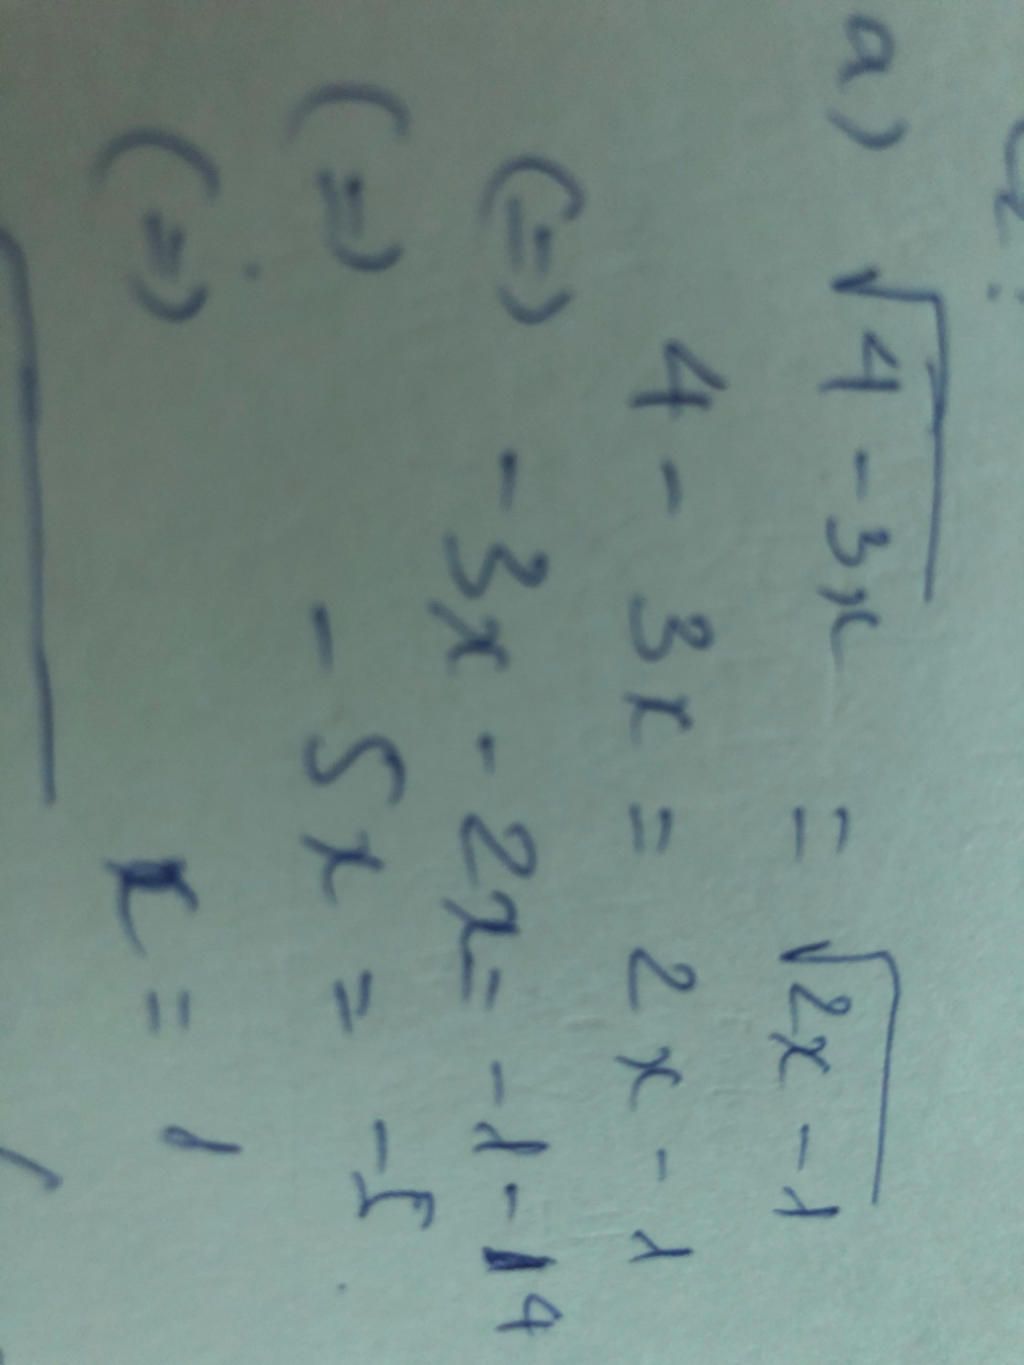 2:
a) √4 - 3x = √2x - 1
4 - 3x = 2x - 1
(=) - 3x - 2x = - 1 - 4
(=) - 5x = - 5
(=) x = 1